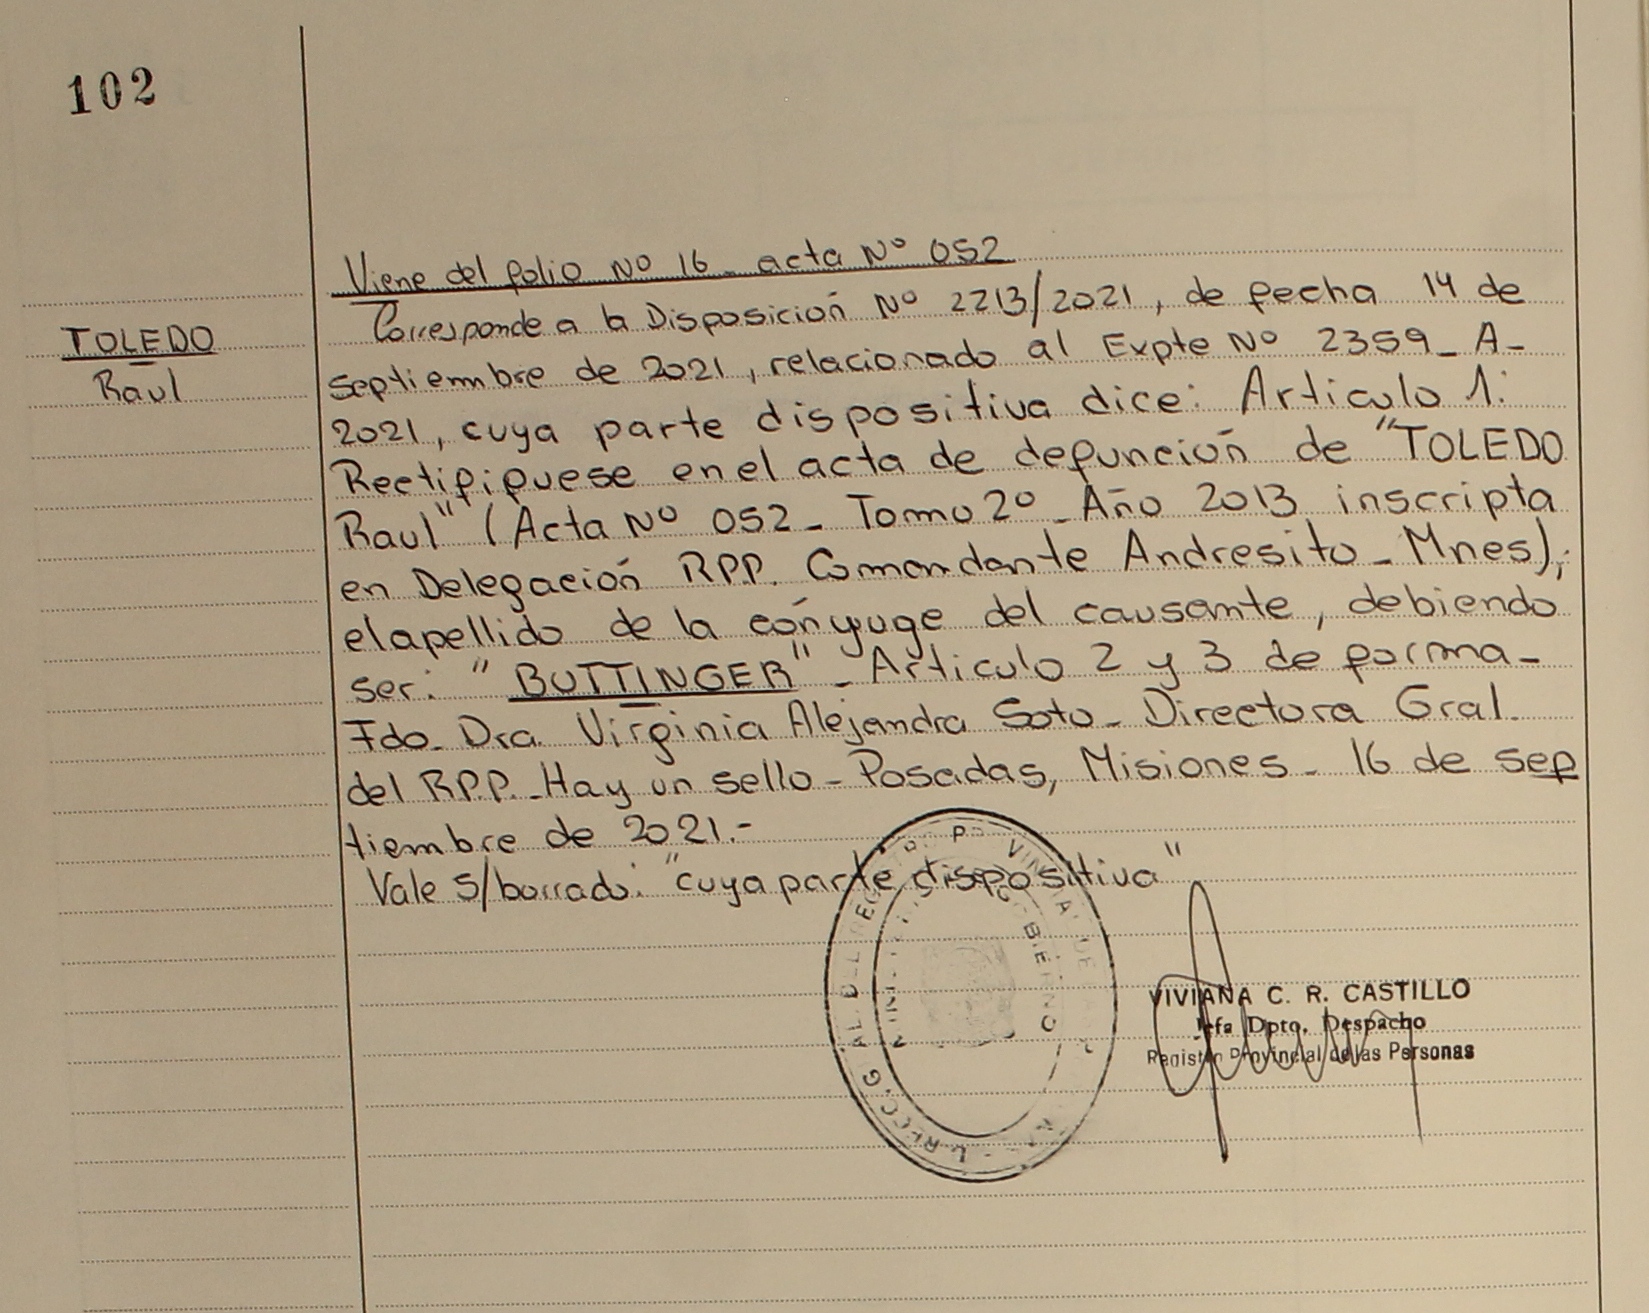 102
TOLEDO
Raul
Viene del folio Nº 16 acta Nº 052
Corresponde a la Disposición Nº 2213/2021, de fecha 14 de
septiembre de 2021, relacionado al Expte Nº 2359_A_
2021, cuya parte dispositiva dice: Articulo 1:
Rectifiquese en el acta de defunción de "TOLEDO
Raul" (Acta Nº 052_ Tomo 2º_Año 2013 inscripta
en Delegación RPP. Comandante Andresito_Mnes),
el apellido de la cónyuge del causante, debiendo
ser: "BUTTINGER"_Articulo 2 y 3 de forma_
Fdo. Dra. Virginia Alejandra Soto_Directora Gral.
del RPP._Hay un sello_Posadas, Misiones_16 de sep
tiembre de 2021.-
Vale s/borrado: "cuya parte dispositiva"
VIVIANA C. R. CASTILLO
Jefa Dpto. Despacho
Registro Provincial de las Personas